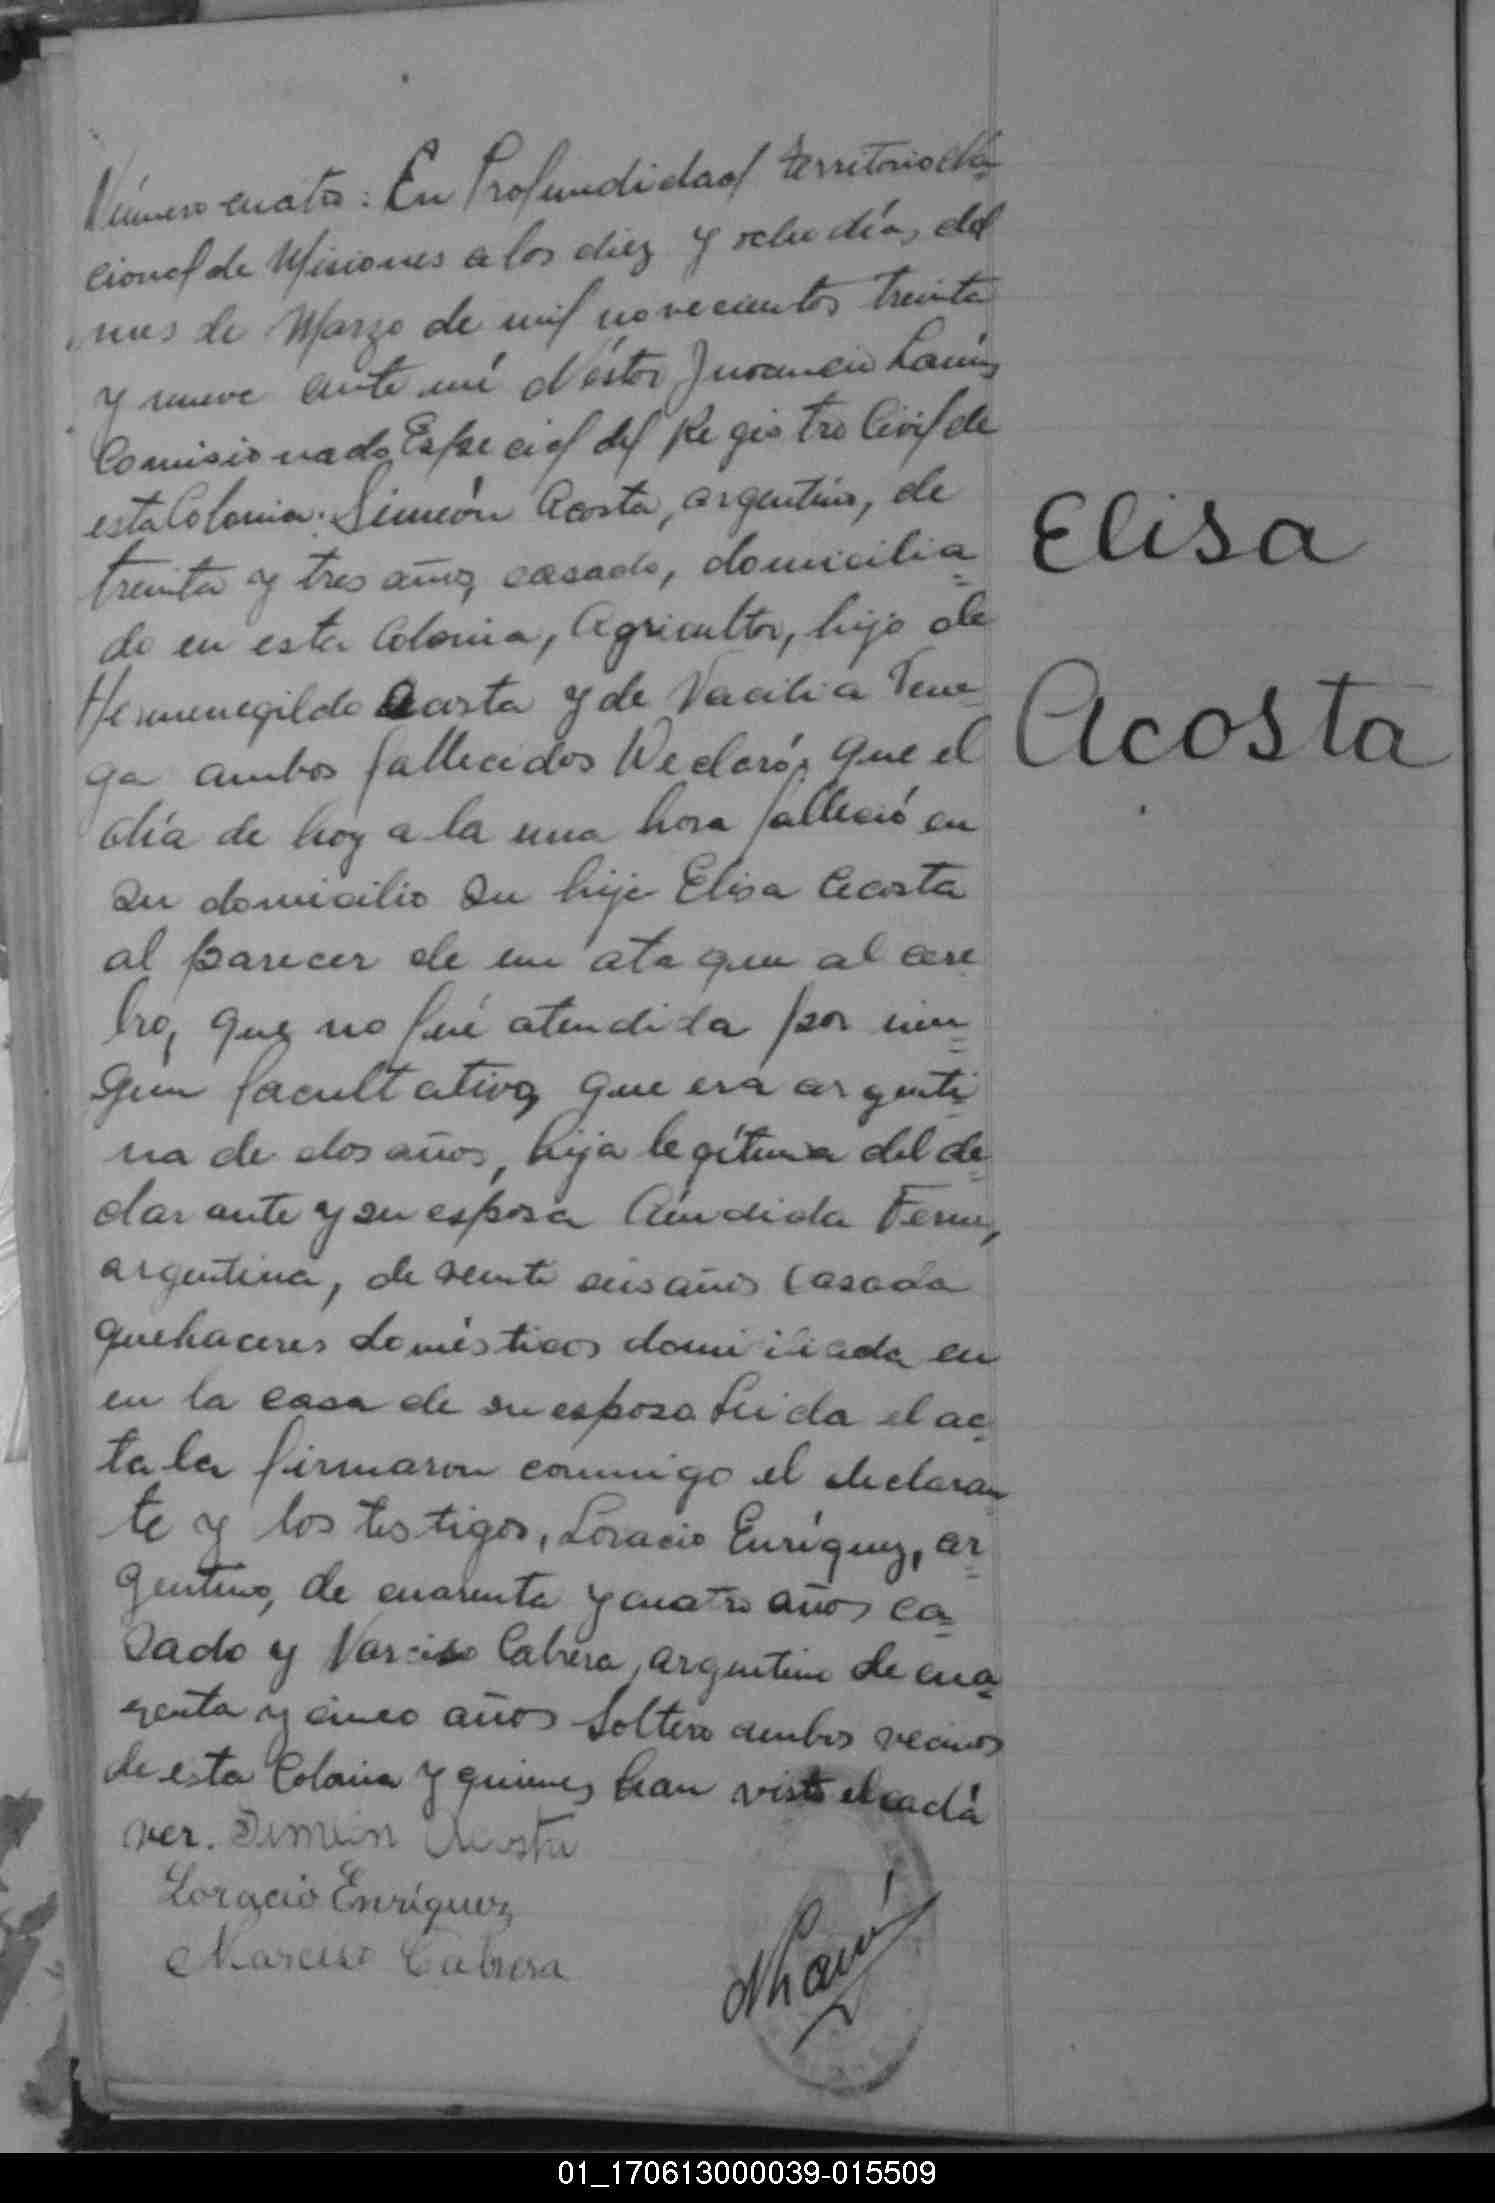 Número cuatro: En Profundidad territorio Na-
cional de Misiones a los diez y ocho días del
mes de Marzo de mil novecientos treinta
y nueve ante mí Néstor Lanús
Comisionado Especial del Registro Civil de
esta Colonia. Simeón Acosta, argentino, de
treinta y tres años, casado, domicilia=
do en esta Colonia, Agricultor, hijo de
Hermenegildo Acosta y de Vacilia
ga ambos fallecidos Declaró, que el
día de hoy a la una hora falleció en
su domicilio su hija Elisa Acosta
al parecer de un ataque al cere
bro, que no fué atendida por nin=
gun facultativo, que era argenti=
na de dos años, hija legítima del de=
clarante y su esposa Cándida
argentina, de veinte seis años casada
quehaceres domésticos domiciliada en
en la casa de su esposo Leida el ac=
ta la firmaron conmigo el declaran=
te y los testigos, Loracio Enríquez, ar=
gentino, de cuarenta y cuatro años ca=
sado y Narciso Cabrera, argentino de cua=
renta y cinco años Soltero ambos vecinos
de esta Colonia y quienes han visto el cadá
ver. Simeon Acosta
Loracio Enríquez
Narciso Cabrera
NLanús
Elisa
Acosta
01_170613000039-015509